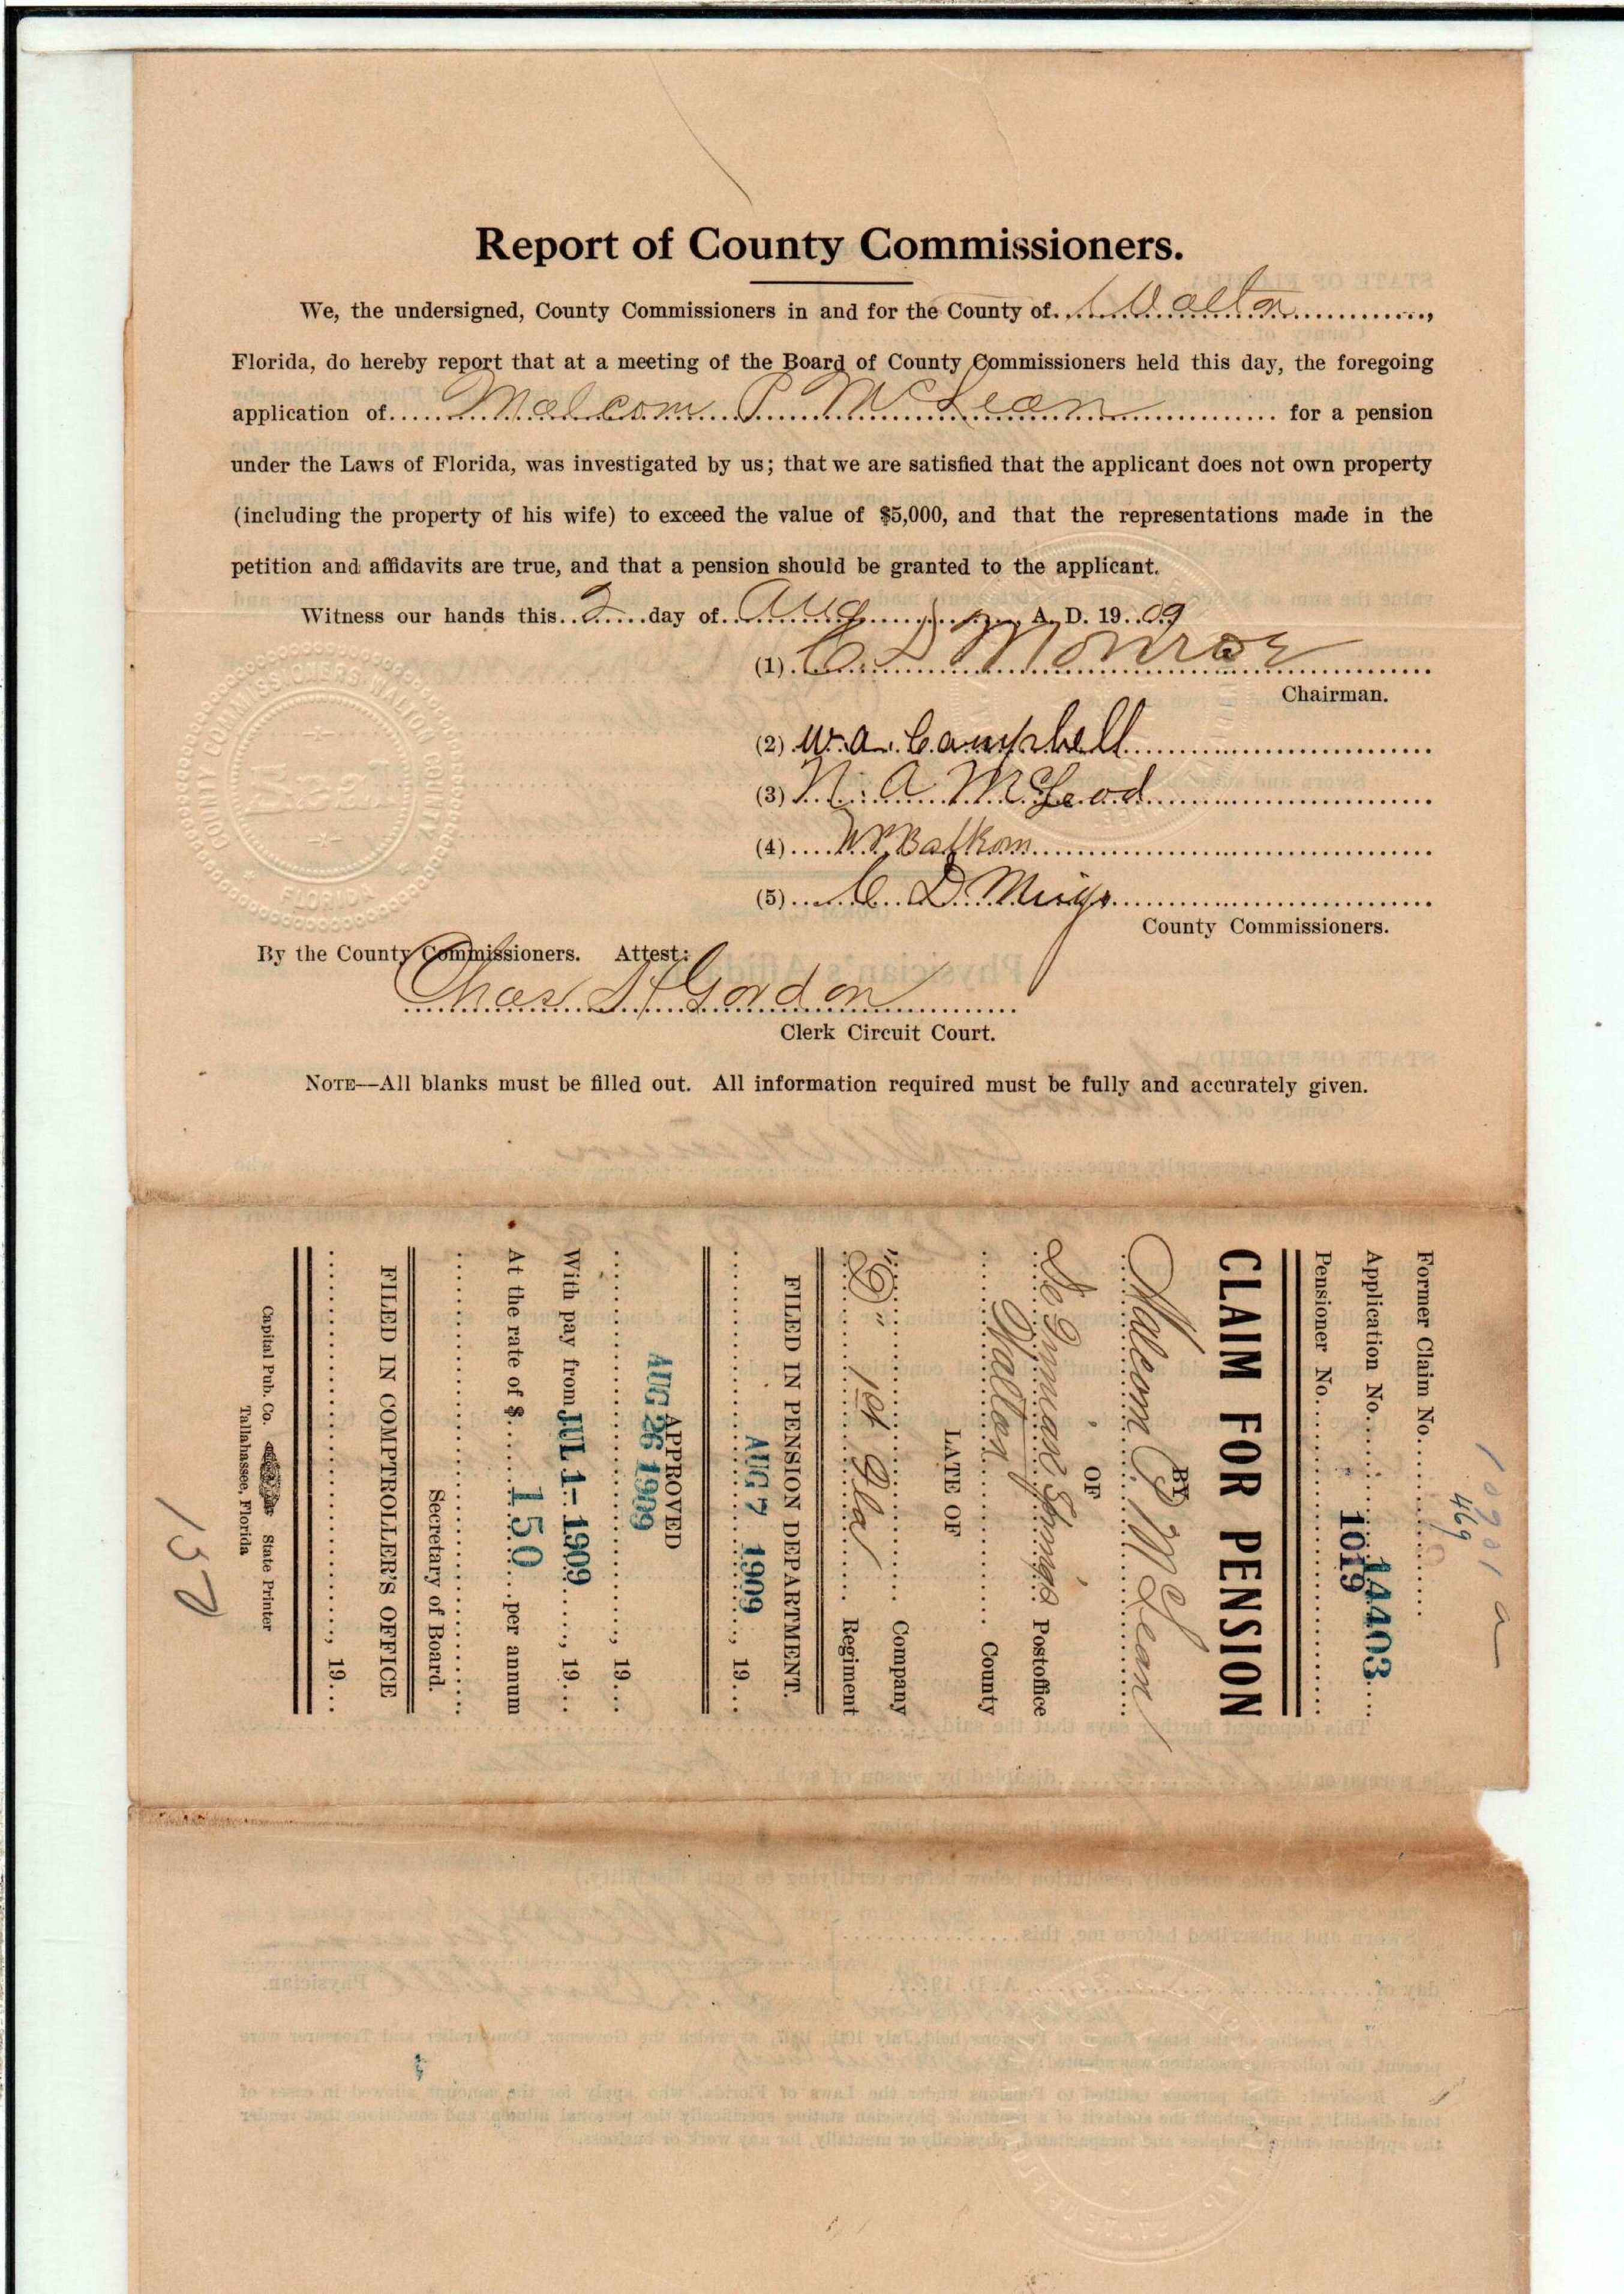 Report of County Commissioners.
We, the undersigned, County Commissioners in and for the County of Walton,
Florida, do hereby report that at a meeting of the Board of County Commissioners held this day, the foregoing
application of Malcom P McLean for a pension
under the Laws of Florida, was investigated by us; that we are satisfied that the applicant does not own property
(including the property of his wife) to exceed the value of $5,000, and that the representations made in the
petition and affidavits are true, and that a pension should be granted to the applicant.
Witness our hands this 2 day of Aug A. D. 1909
(1) C D Monroe
Chairman.
(2) W. A. Campbell
(3) N. A. McLeod
(4) Balkom
(5) C. D. Meigs
County Commissioners.
COUNTY COMMISSIONERS WALTON COUNTY
Seal
FLORIDA
By the County Commissioners. Attest:
Chas H Gordon
Clerk Circuit Court.
NOTE—All blanks must be filled out. All information required must be fully and accurately given.
469
Former Claim No.
Application No. 14403
Pensioner No. 1019
CLAIM FOR PENSION
BY
Malcom P McLean
OF
De Funiak Springs Postoffice
Walton County
LATE OF
"D" Company
1st Fla Regiment
FILED IN PENSION DEPARTMENT.
AUG 7 1909, 19
APPROVED
AUG 26 1909, 19
With pay from JUL 1-1909, 19
At the rate of $ 150 per annum
Secretary of Board.
FILED IN COMPTROLLER'S OFFICE
, 19
Capital Pub. Co. State Printer
Tallahassee, Florida